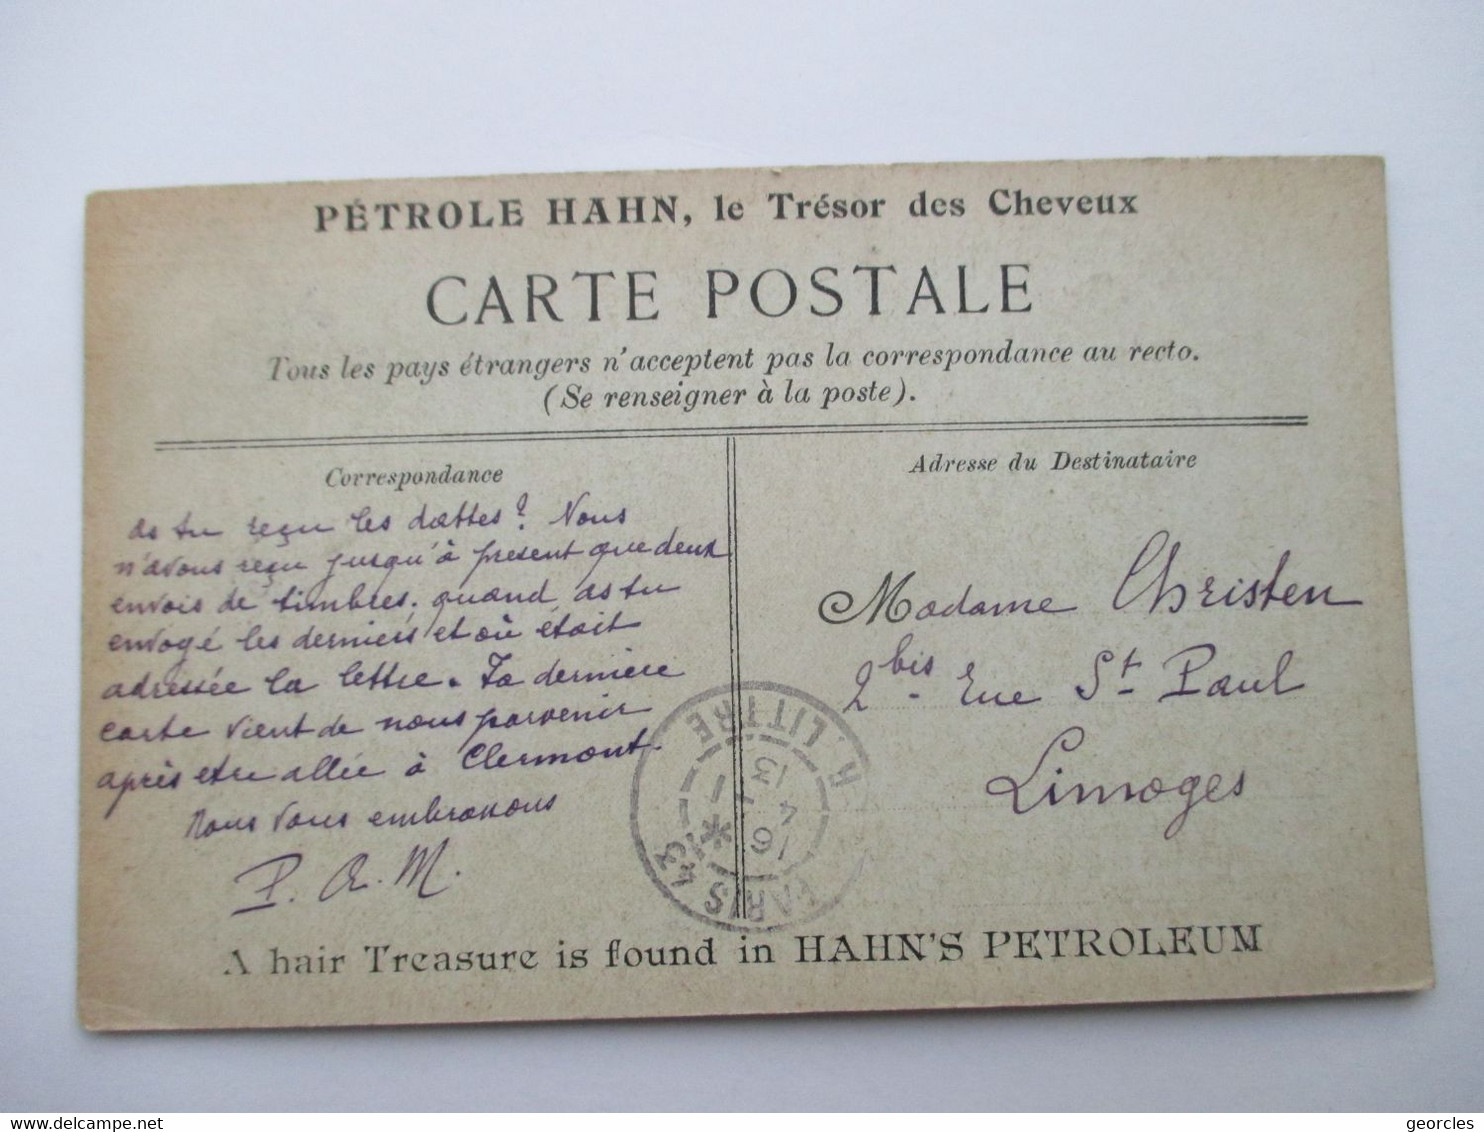 PÉTROLE HAHN, le Trésor des Cheveux
CARTE POSTALE
Tous les pays étrangers n'acceptent pas la correspondance au recto.
(Se renseigner à la poste).
Correspondance
as tu reçu les dattes? Nous
n'avons reçu jusqu'à present que deux
envois de timbres. quand as tu
envoyé les derniers et où était
adressée la lettre. Ta derniere
carte vient de nous parvenir
après etre allée à Clermont.
Nous vous embrassons
P. A. M.
Adresse du Destinataire
Madame Christen
2 bis rue St Paul
Limoges
PARIS 43 R. LITTRE
13
4
16
A hair Treasure is found in HAHN'S PETROLEUM
www.delcampe.net
georcles